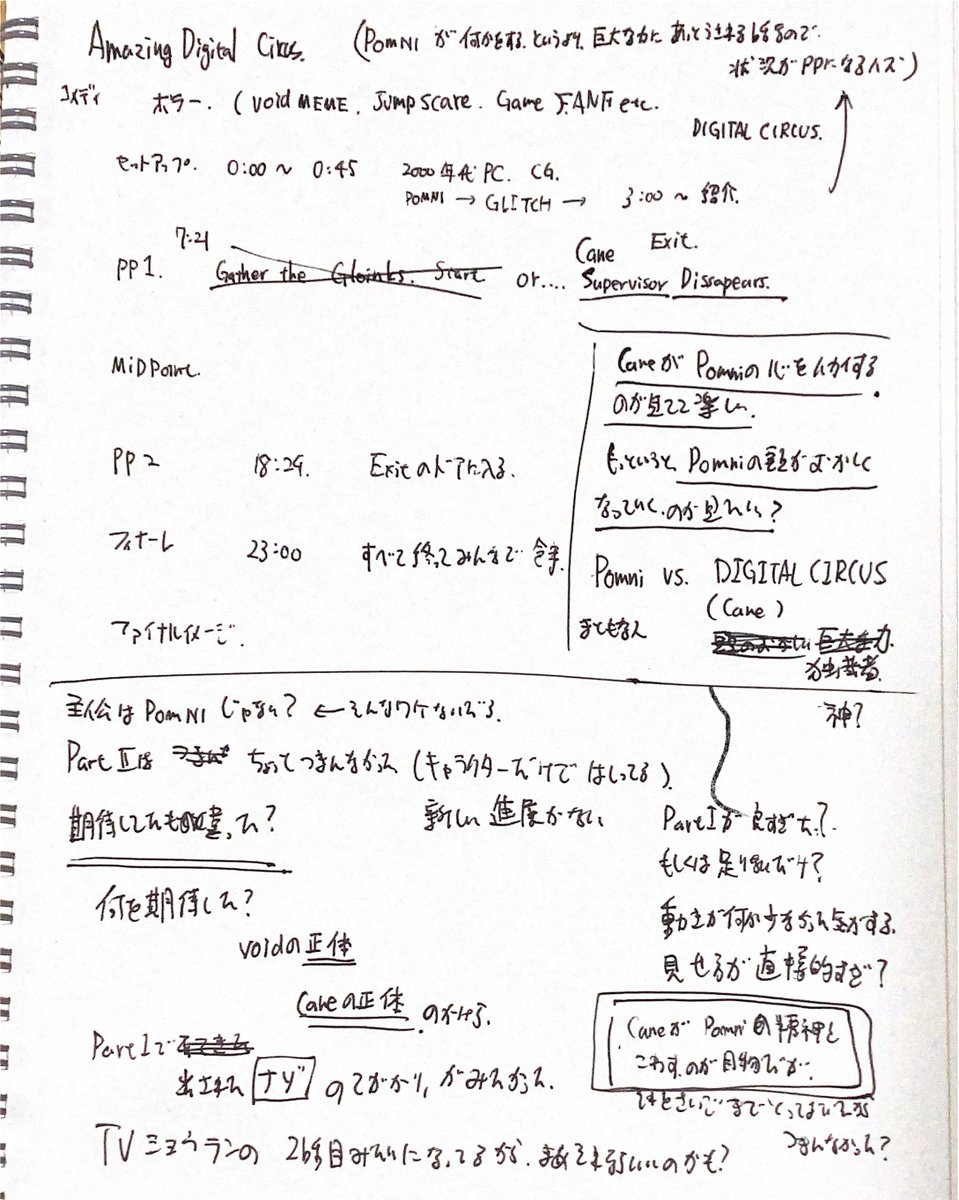 Amazing Digital Cirus. (POMNI が何かをする.というより, 巨大なかに あっとうされる なので.
状況がPPになるハズ)
コメディ ホラー. (void MEME, Jump scare. Game FANF etc.
DIGITAL CIRCUS.
セットアップ. 0:00 ~ 0:45 2000年代PC. CG.
POMNI → GLITCH → 3:00 ~ 紹介.
7:21
PP1. Gather the Gloinks. Start or.... Cane Exit.
Supervisor Dissapears.
MiDPoint.
Caneが Pomniの心をハカイする
のが見てて楽しい.
PP2 18:29. Exitのドアに入る.
もっというと, Pomniの頭がおかしく
なっていく.のが見たい?
フィナーレ 23:00 すべて終ってみんなで 食事.
Pomni vs. DIGITAL CIRCUS
(Cane)
まともな人 巨大な力.
独裁者.
神?
ファイナルイメージ.
主人公は POMNI じゃない? ← そんなワケないだろ.
Part Ⅱは ちょってつまんなかった (キャラクターだけで はしってる).
新しい 進展がない
期待してたものと違った?
何を期待した?
voidの正体
Caneの正体 .
Part Iで
出された ナゾ のてがかり, がみたかった.
Part Iが良すぎた.?
もしくは足りないだけ?
動きが何か少なかった気がする.
見せ方が直接的すぎ?
Caneが Pomniの精神を
こわす.のが目的だが.
つまんなかった?
TVミョウランの 2話目みたいになってるが. まあそれぐらいいいのかも?